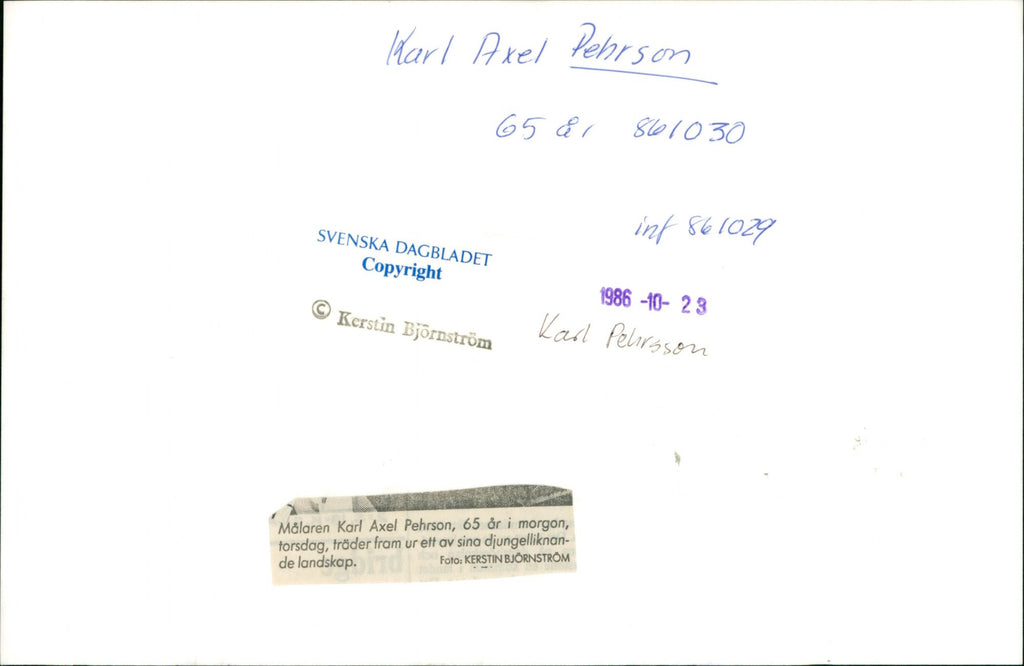 Karl Axel Pehrson
65 år 861030
inf 861029
SVENSKA DAGBLADET
Copyright
1986 -10- 23
© Kerstin Björnström
Karl Pehrsson
Målaren Karl Axel Pehrson, 65 år i morgon,
torsdag, träder fram ur ett av sina djungelliknan-
de landskap. Foto: KERSTIN BJÖRNSTRÖM